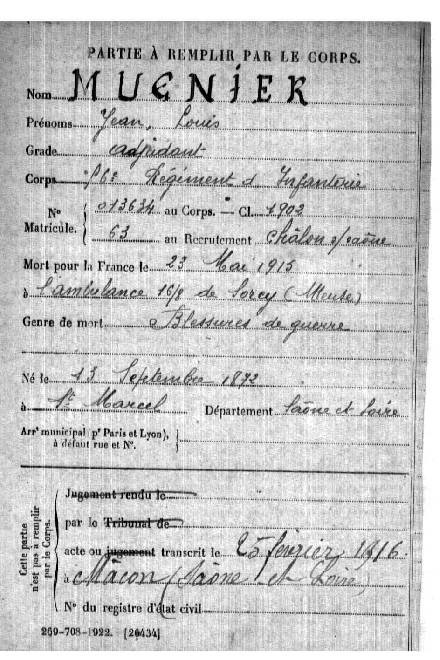 PARTIE À REMPLIR PAR LE CORPS.
Nom MUGNIER
Prénoms Jean, Louis
Grade adjudant
Corps 56e Régiment d'Infanterie
N° Matricule. 013634 au Corps. — Cl. 1902
63 au Recrutement Châlon s/Saône
Mort pour la France le 23 Mai 1915
à l'ambulance 16/8 de Sorcy (Meuse)
Genre de mort Blessures de guerre
Né le 13 Septembre 1872
à St Marcel Département Saône et Loire
Arrt municipal (pr Paris et Lyon),
à défaut rue et N°.
Cette partie n'est pas à remplir par le Corps.
Jugement rendu le
par le Tribunal de
acte ou jugement transcrit le 25 février 1916.
à Mâcon (Saône et Loire)
N° du registre d'état civil
269-708-1922. [26434]